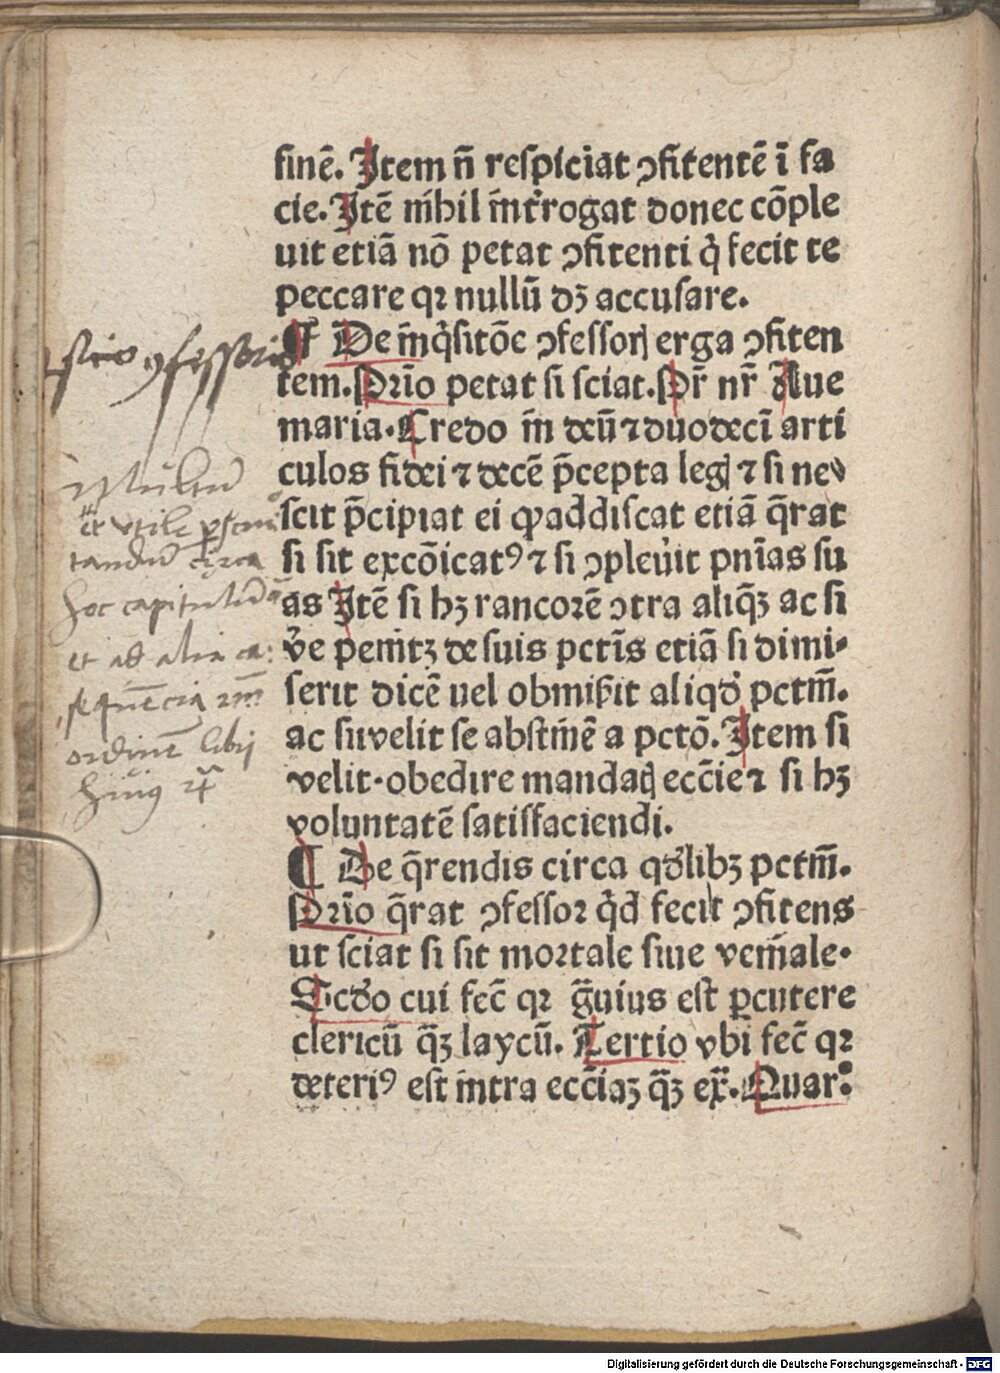 sinē. Item n̄ respiciat ꝯfitentē ī fa
cie. Itē nihil īnt̾rogat donec cōple
uit etiā nō petat ꝯfitenti q̇ fecit te
peccare qꝛ nullū dꝫ accusare.
¶ De inq̇sitōe ꝯfessorꝭ erga ꝯfiten
tem. Prīo petat si sciat. Pr̄ nr̄ Aue
maria. Credo in deū ⁊ duodecī arti
culos fidei ⁊ decē p̄cepta legꝭ ⁊ si ne
scit p̄cipiat ei ꝙ addiscat etiā q̄rat
si sit excōicatꝰ ⁊ si ꝯpleuit pnīas su
as Itē si hꝫ rancorē ꝯtra aliq̄ꝫ ac si
ve penitꝫ de suis pctīs etiā si dimi-
serit dicē uel obmisit aliqd̾ pctm̄.
ac si velit se abstinē a pctō. Item si
velit obedire mandatꝭ ecc̄ie ⁊ si hꝫ
voluntatē satisfaciendi.
¶ De q̄rendis circa qd̾libꝫ pctm̄.
Prīo q̄rat ꝯfessor q̇d fecit ꝯfitens
ut sciat si sit mortale siue veniale.
Scd̾o cui fec̄ qꝛ g̾uius est ꝑcutere
clericū q̄ꝫ laycū. Tertio vbi fec̄ qꝛ
deteriꝰ est intra ecc̄iaꝫ q̄ꝫ ex̄. Quar:
ꝯfessoris
et vtile
tandū circa
hoc capitulū
et ad alia
sequēcia
ordinē libri
huiꝰ
Digitalisierung gefördert durch die Deutsche Forschungsgemeinschaft - DFG